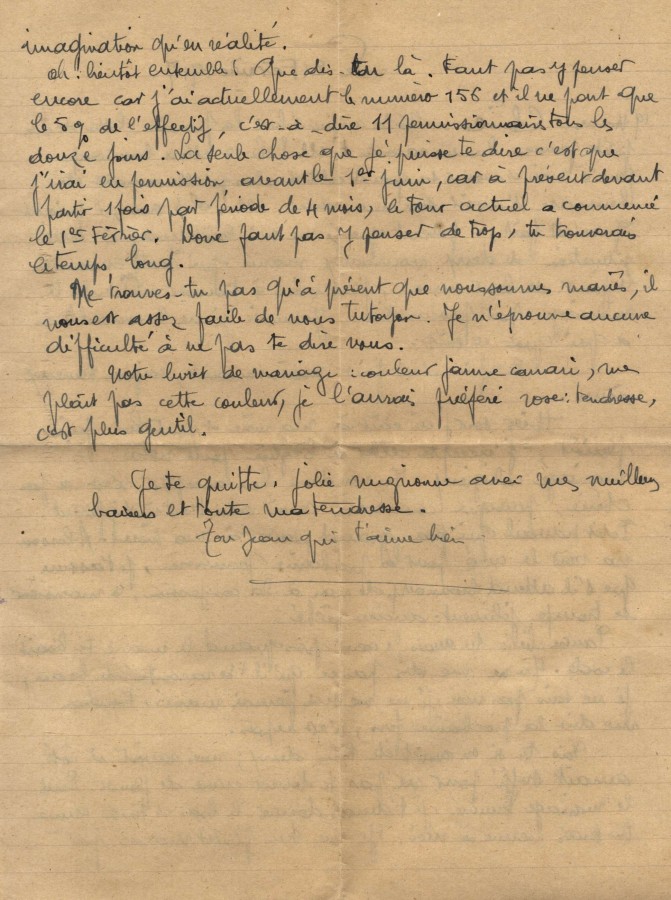 imagination qu'en réalité.
Oh! bientôt ensemble! Que dis-tu là. Faut pas y penser
encore car j'ai actuellement le numéro 156 et il ne part que
le 5% de l'effectif, c'est-à-dire 11 permissionnaires tous les
douze jours. La seule chose que je puisse te dire c'est que
j'irai en permission avant le 1er juin, car à présent devant
partir 1 fois par période de 4 mois, le tour actuel a commencé
le 1er Février. Donc faut pas y penser de trop, tu trouverais
le temps long.
Ne trouves-tu pas qu'à présent que nous sommes mariés, il
nous est assez facile de nous tutoyer. Je n'éprouve aucune
difficulté à ne pas te dire vous.
Notre livret de mariage : couleur jaune canari, me
plaît pas cette couleur, je l'aurais préféré rose : tendresse,
c'est plus gentil.
Je te quitte, jolie mignonne avec mes meilleurs
baisers et toute ma tendresse.
Ton Jean qui t'aime bien